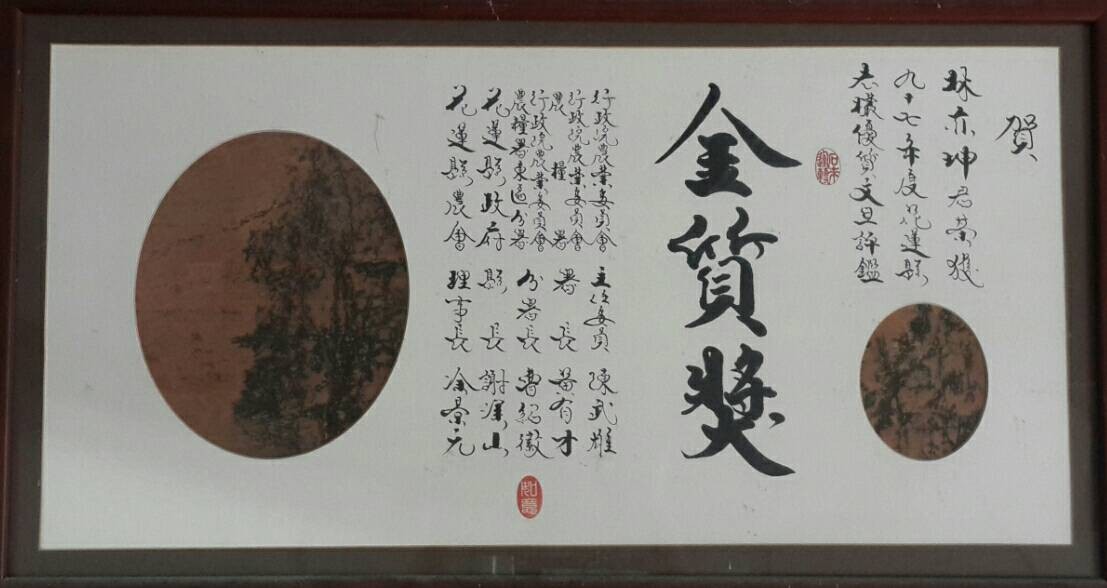 賀
林亦坤君榮獲
九十七年度花蓮縣
吉樣優質文旦評鑑
金質獎
行政院農業委員會 主任委員 陳武雄
行政院農業委員會農糧署 署長 黃有才
行政院農業委員會農糧署東區分署 分署長 曹紹徽
花蓮縣政府 縣長 謝深山
花蓮縣農會 理事長 涂景元
如意